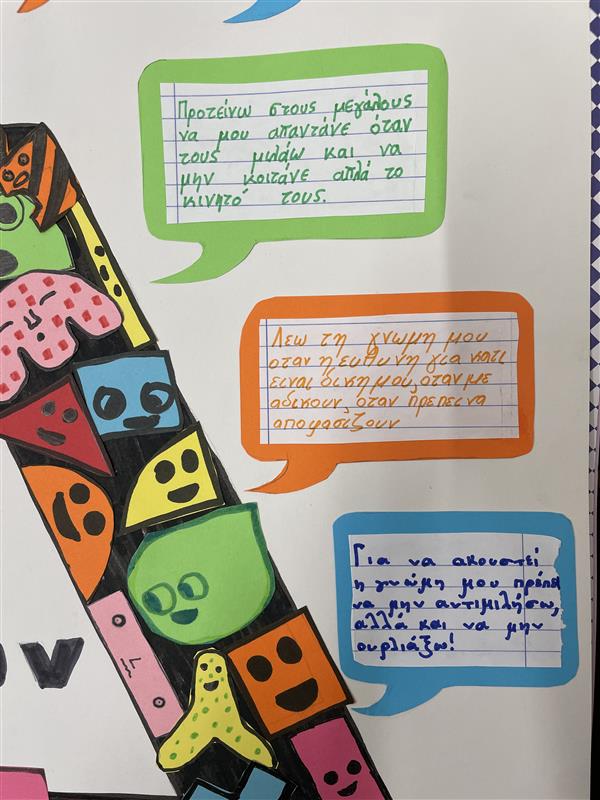 Προτείνω στους μεγάλους
να μου απαντάνε όταν
τους μιλάω και να
μην κοιτάνε απλά το
κινητό τους.
Λεω τη γνωμη μου
οταν η ευθυνη για κατι
ειναι δικη μου, οταν με
αδικουν, οταν πρεπει να
αποφασίζουν
Για να ακουστεί
η γνώμη μου πρέπει
να μην αντιμιλήσω,
αλλά και να μην
ουρλιάξω!
ον